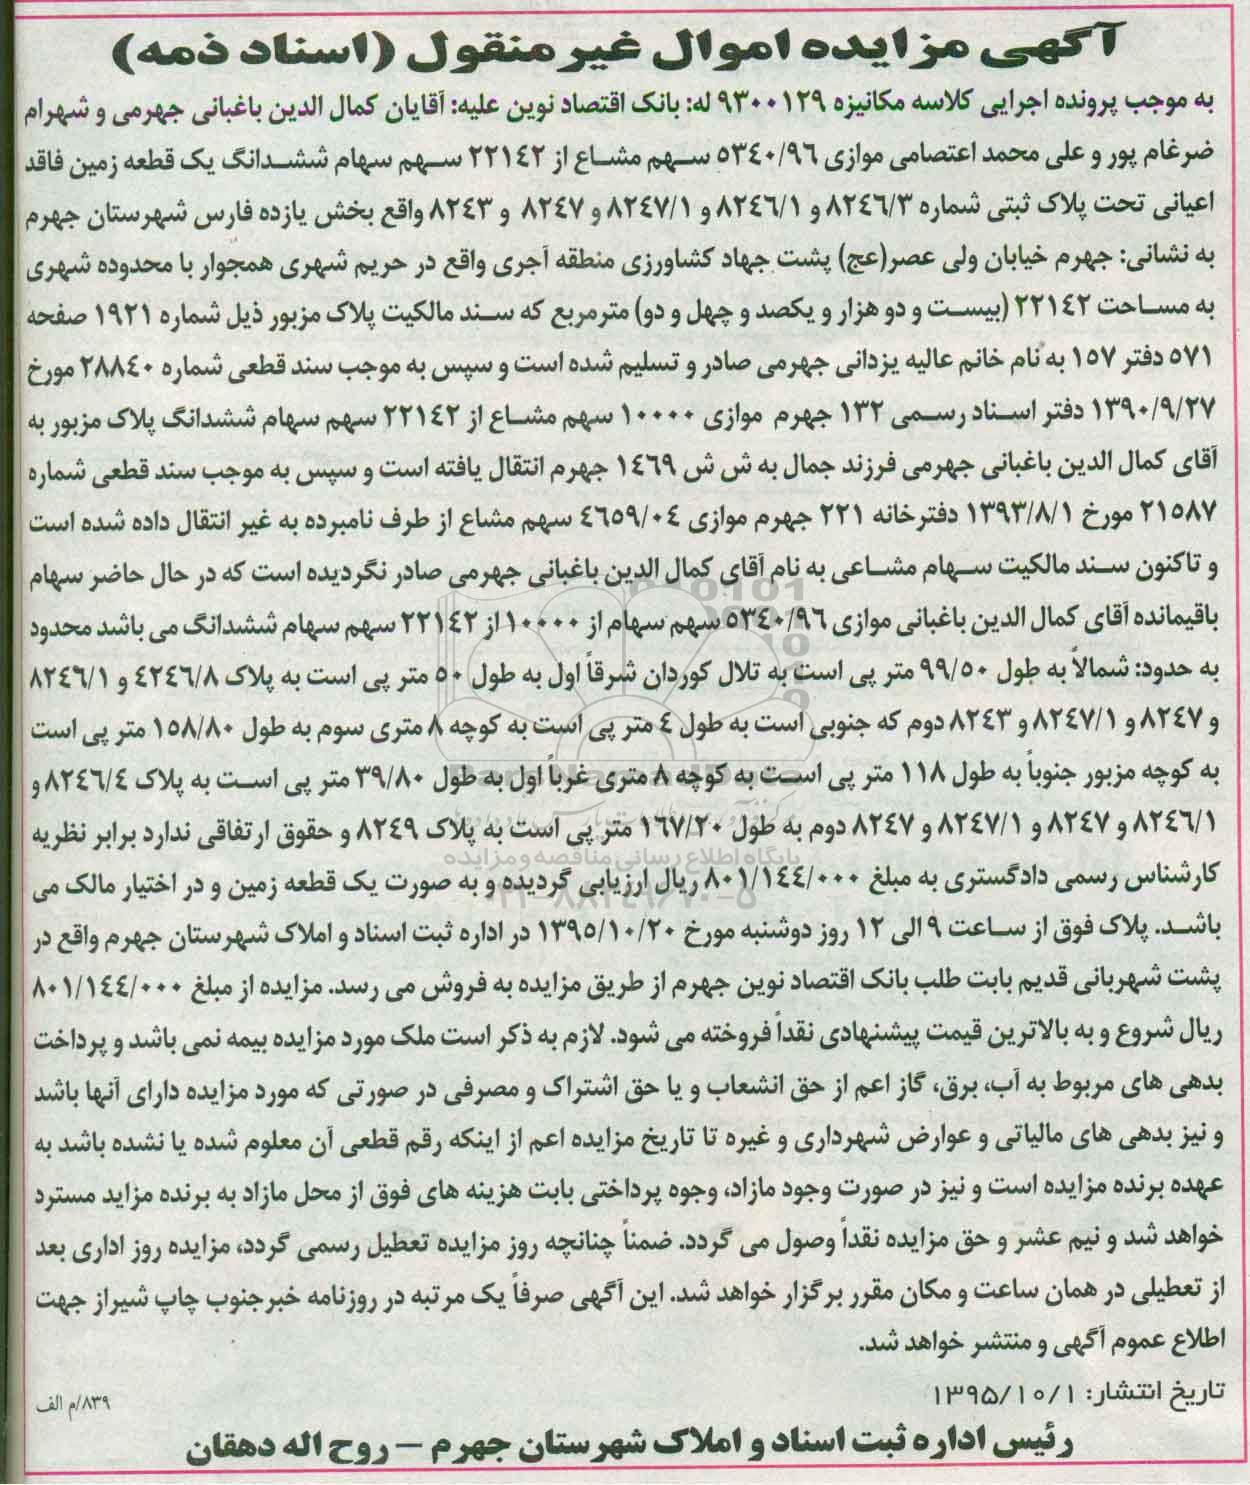 آگهی مزایده اموال غیر منقول (اسناد ذمه)
به موجب پرونده اجرایی کلاسه مکانیزه ۹۳۰۰۱۲۹ له: بانک اقتصاد نوین علیه: آقایان کمال الدین باغبانی جهرمی و شهرام
ضرغام پور و علی محمد اعتصامی موازی ۵۳٤۰/۹۶ سهم مشاع از ۲۲۱٤۲ سهم سهام ششدانگ یک قطعه زمین فاقد
اعیانی تحت پلاک ثبتی شماره ۸۲٤۶/۳ و ۸۲٤۶/۱ و ۸۲٤۷/۱ و ۸۲٤۷ و ۸۲٤۳ واقع بخش یازده فارس شهرستان جهرم
به نشانی: جهرم خیابان ولی عصر(عج) پشت جهاد کشاورزی منطقه آجری واقع در حریم شهری همجوار با محدوده شهری
به مساحت ۲۲۱٤۲ (بیست و دو هزار و یکصد و چهل و دو) مترمربع که سند مالکیت پلاک مزبور ذیل شماره ۱۹۲۱ صفحه
۵۷۱ دفتر ۱۵۷ به نام خانم عالیه یزدانی جهرمی صادر و تسلیم شده است و سپس به موجب سند قطعی شماره ۲۸۸٤۰ مورخ
۱۳۹۰/۹/۲۷ دفتر اسناد رسمی ۱۳۲ جهرم موازی ۱۰۰۰۰ سهم مشاع از ۲۲۱٤۲ سهم سهام ششدانگ پلاک مزبور به
آقای کمال الدین باغبانی جهرمی فرزند جمال به ش ش ۱٤۶۹ جهرم انتقال یافته است و سپس به موجب سند قطعی شماره
۲۱۵۸۷ مورخ ۱۳۹۳/۸/۱ دفترخانه ۲۲۱ جهرم موازی ٤۶۵۹/۰٤ سهم مشاع از طرف نامبرده به غیر انتقال داده شده است
و تاکنون سند مالکیت سهام مشاعی به نام آقای کمال الدین باغبانی جهرمی صادر نگردیده است که در حال حاضر سهام
باقیمانده آقای کمال الدین باغبانی موازی ۵۳٤۰/۹۶ سهم سهام از ۱۰۰۰۰ از ۲۲۱٤۲ سهم سهام ششدانگ می باشد محدود
به حدود: شمالاً به طول ۹۹/۵۰ متر پی است به تلال کوردان شرقاً اول به طول ۵۰ متر پی است به پلاک ٤۲٤۶/۸ و ۸۲٤۶/۱
و ۸۲٤۷ و ۸۲٤۷/۱ و ۸۲٤۳ دوم که جنوبی است به طول ٤ متر پی است به کوچه ۸ متری سوم به طول ۱۵۸/۸۰ متر پی است
به کوچه مزبور جنوباً به طول ۱۱۸ متر پی است به کوچه ۸ متری غرباً اول به طول ۳۹/۸۰ متر پی است به پلاک ۸۲٤۶/٤ و
۸۲٤۶/۱ و ۸۲٤۷ و ۸۲٤۷/۱ و ۸۲٤۷ دوم به طول ۱۶۷/۲۰ متر پی است به پلاک ۸۲٤۹ و حقوق ارتفاقی ندارد برابر نظریه
پایگاه اطلاع رسانی مناقصه و مزایده
کارشناس رسمی دادگستری به مبلغ ۸۰۱/۱٤٤/۰۰۰ ریال ارزیابی گردیده و به صورت یک قطعه زمین و در اختیار مالک می
۰۲۱-۸۸۳٤۹۶۷۰-۵
باشد. پلاک فوق از ساعت ۹ الی ۱۲ روز دوشنبه مورخ ۱۳۹۵/۱۰/۲۰ در اداره ثبت اسناد و املاک شهرستان جهرم واقع در
پشت شهربانی قدیم بابت طلب بانک اقتصاد نوین جهرم از طریق مزایده به فروش می رسد. مزایده از مبلغ ۸۰۱/۱٤٤/۰۰۰
ریال شروع و به بالاترین قیمت پیشنهادی نقداً فروخته می شود. لازم به ذکر است ملک مورد مزایده بیمه نمی باشد و پرداخت
بدهی های مربوط به آب، برق، گاز اعم از حق انشعاب و یا حق اشتراک و مصرفی در صورتی که مورد مزایده دارای آنها باشد
و نیز بدهی های مالیاتی و عوارض شهرداری و غیره تا تاریخ مزایده اعم از اینکه رقم قطعی آن معلوم شده یا نشده باشد به
عهده برنده مزایده است و نیز در صورت وجود مازاد، وجوه پرداختی بابت هزینه های فوق از محل مازاد به برنده مزاید مسترد
خواهد شد و نیم عشر و حق مزایده نقداً وصول می گردد. ضمناً چنانچه روز مزایده تعطیل رسمی گردد، مزایده روز اداری بعد
از تعطیلی در همان ساعت و مکان مقرر برگزار خواهد شد. این آگهی صرفاً یک مرتبه در روزنامه خبرجنوب چاپ شیراز جهت
اطلاع عموم آگهی و منتشر خواهد شد.
تاریخ انتشار: ۱۳۹۵/۱۰/۱
۸۳۹/م الف
رئیس اداره ثبت اسناد و املاک شهرستان جهرم – روح اله دهقان